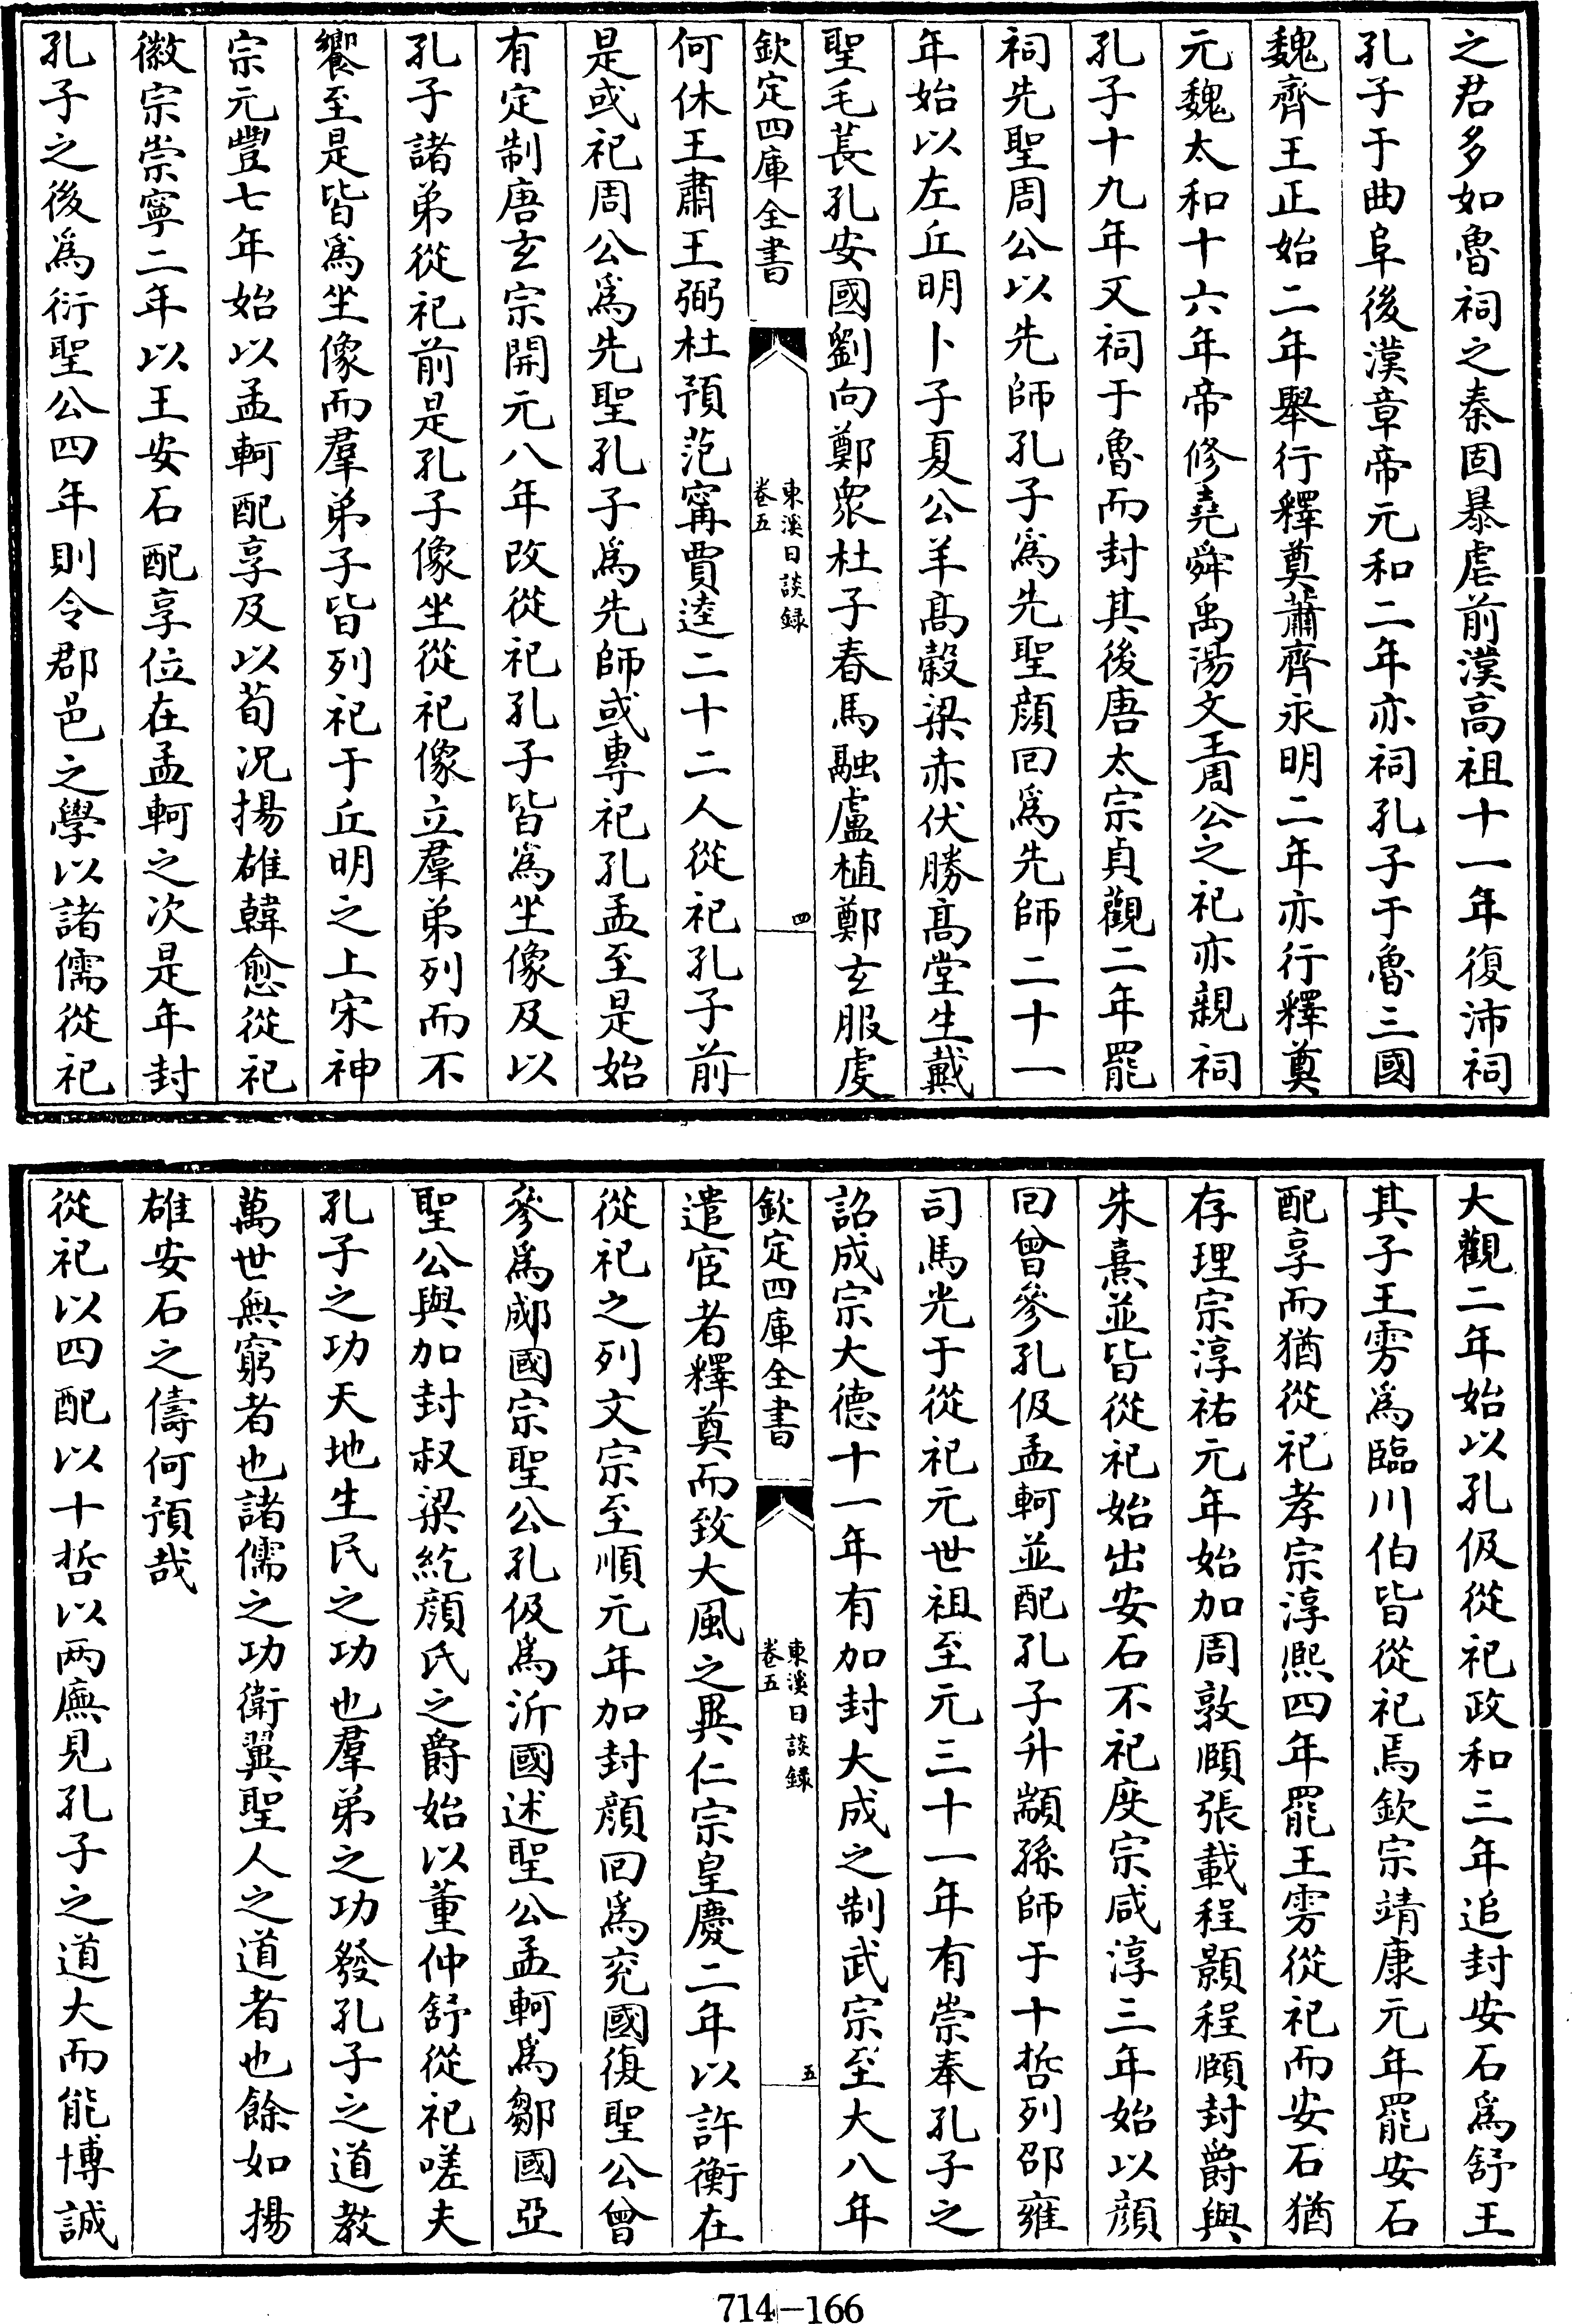 之君多如魯祠之秦固暴虐前漢高祖十一年復沛祠
孔子于曲阜後漢章帝元和二年亦祠孔子于魯三國
魏齊王正始二年舉行釋奠蕭齊永明二年亦行釋奠
元魏太和十六年帝修堯舜禹湯文王周公之祀亦親祠
孔子十九年又祠于魯而封其後唐太宗貞觀二年罷
祠先聖周公以先師孔子爲先聖顔回爲先師二十一
年始以左丘明卜子夏公羊髙榖梁赤伏勝髙堂生戴
聖毛萇孔安國劉向鄭衆杜子春馬融盧植鄭玄服虔
欽定四庫全書
東溪日談録
卷五
四
何休王肅王弼杜預范甯賈逵二十二人從祀孔子前
是或祀周公爲先聖孔子爲先師或專祀孔孟至是始
有定制唐玄宗開元八年改從祀孔子皆爲坐像及以
孔子諸弟從祀前是孔子像坐從祀像立羣弟列而不
饗至是皆爲坐像而羣弟子皆列祀于丘明之上宋神
宗元豐七年始以孟軻配享及以荀况揚雄韓愈從祀
徽宗崇寧二年以王安石配享位在孟軻之次是年封
孔子之後爲衍聖公四年則令郡邑之學以諸儒從祀
大觀二年始以孔伋從祀政和三年追封安石爲舒王
其子王雱爲臨川伯皆從祀焉欽宗靖康元年罷安石
配享而猶從祀孝宗淳熙四年罷王雱從祀而安石猶
存理宗淳祐元年始加周敦頤張載程顥程頤封爵與
朱熹並皆從祀始出安石不祀度宗咸淳三年始以顔
回曾參孔伋孟軻並配孔子升顓孫師于十哲列邵雍
司馬光于從祀元世祖至元三十一年有崇奉孔子之
詔成宗大德十一年有加封大成之制武宗至大八年
欽定四庫全書
東溪日談録
卷五
五
遣宦者釋奠而致大風之異仁宗皇慶二年以許衡在
從祀之列文宗至順元年加封顔回爲兖國復聖公曾
參爲郕國宗聖公孔伋爲沂國述聖公孟軻爲鄒國亞
聖公與加封叔梁紇顔氏之爵始以董仲舒從祀嗟夫
孔子之功天地生民之功也羣弟之功發孔子之道教
萬世無窮者也諸儒之功衛翼聖人之道者也餘如揚
雄安石之儔何預哉
從祀以四配以十哲以两廡見孔子之道大而能博誠
714-166